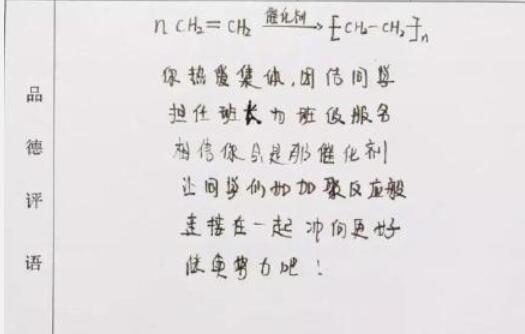 品德评语
n CH₂=CH₂ —催化剂→ [CH₂-CH₂]n
你热爱集体,团结同学
担任班长为班级服务
相信你会是那催化剂
让同学们如加聚反应般
连接在一起 冲向更好
继续努力吧!